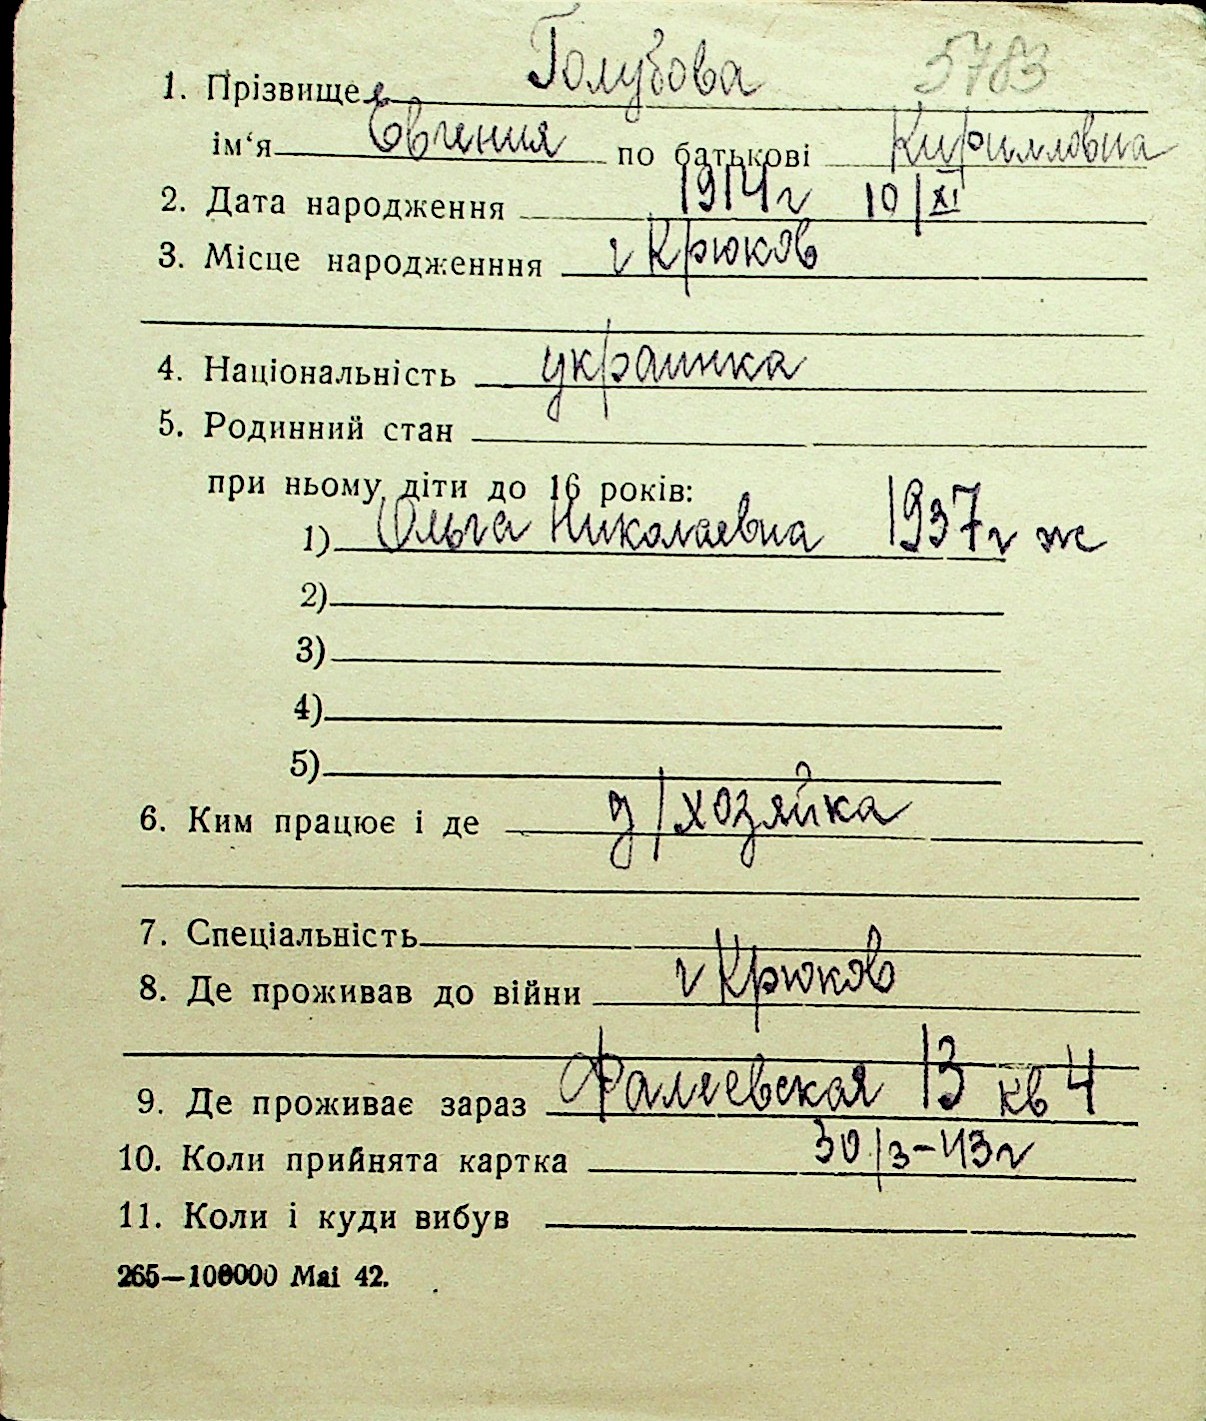 5783
1. Прізвище Голубова
ім'я Евгения по батькові Кирилловна
2. Дата народження 1914 г 10/XI
3. Місце народженння г Крюков
4. Національність украинка
5. Родинний стан
при ньому діти до 16 років:
1) Ольга Николаевна 1937 г ж
2)
3)
4)
5)
6. Ким працює і де д/хозяйка
7. Спеціальність
8. Де проживав до війни г Крюков
9. Де проживає зараз Фалеевская 13 кв 4
10. Коли прийнята картка 30/3-43 г
11. Коли і куди вибув
265—100000 Mai 42.